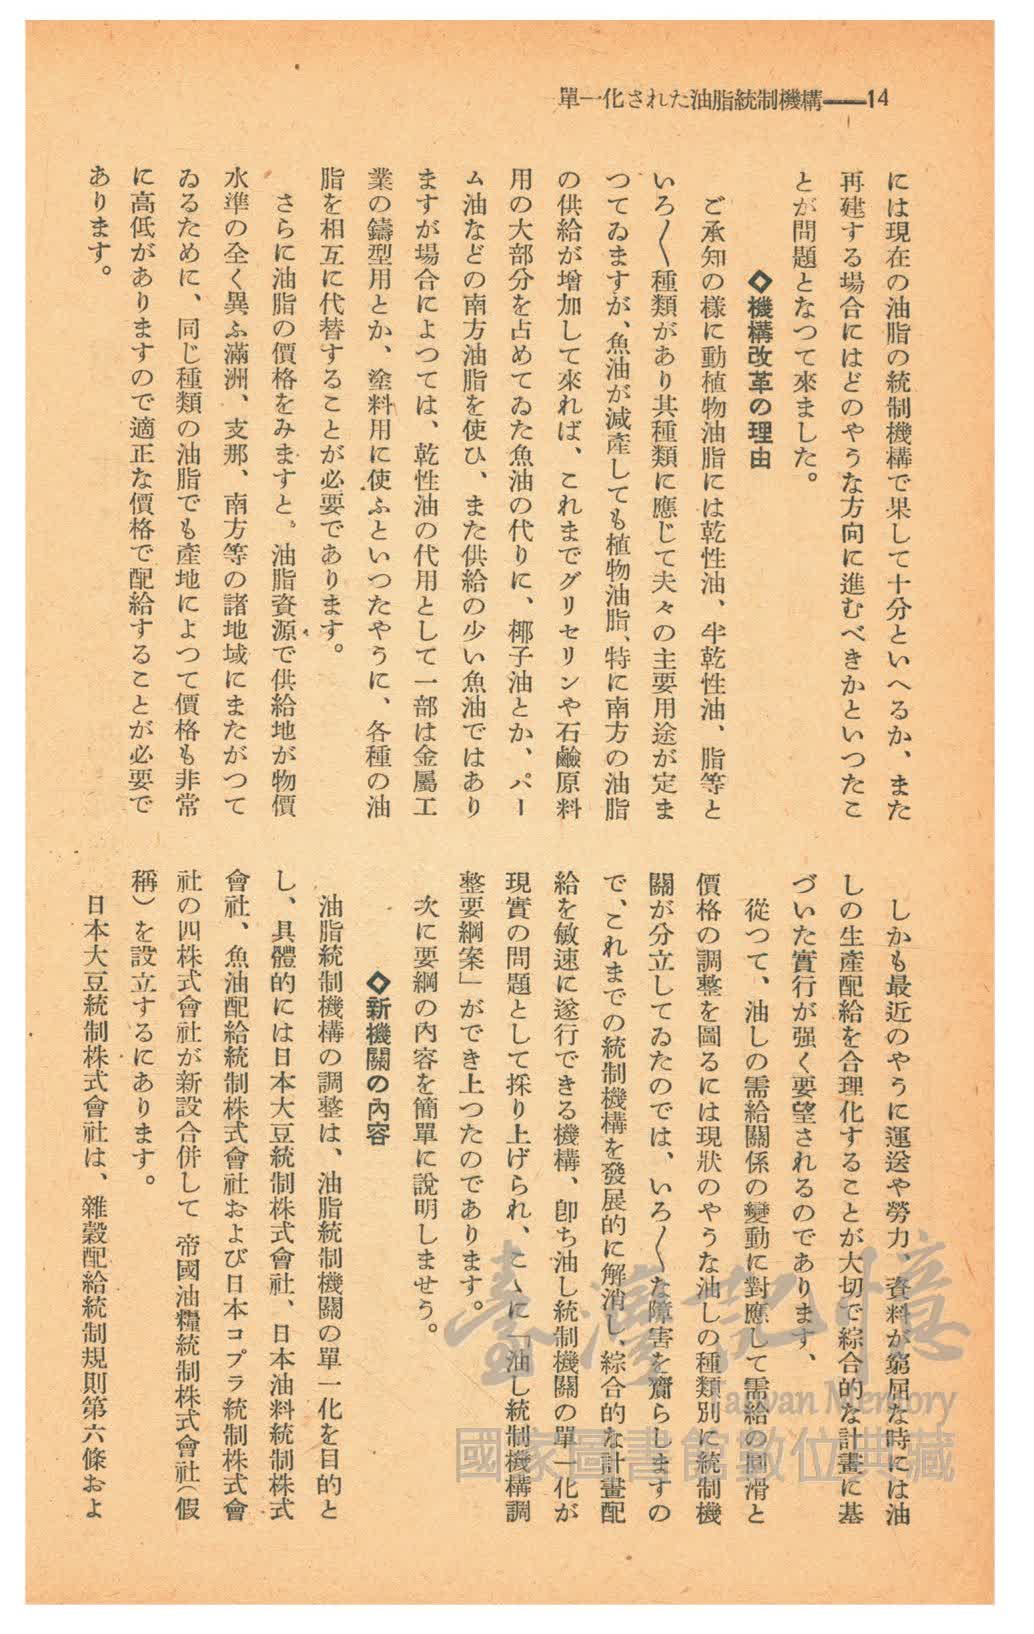 單一化された油脂統制機構━━14
には現在の油脂の統制機構で果して十分といへるか、また
再建する場合にはどのやうな方向に進むべきかといつたこ
とが問題となつて來ました。
◇機構改革の理由
ご承知の樣に動植物油脂には乾性油、半乾性油、脂等と
いろ〱種類があり其種類に應じて夫々の主要用途が定ま
つてゐますが、魚油が減產しても植物油脂、特に南方の油脂
の供給が增加して來れば、これまでグリセリンや石鹼原料
用の大部分を占めてゐた魚油の代りに、椰子油とか、パー
ム油などの南方油脂を使ひ、また供給の少い魚油ではあり
ますが場合によつては、乾性油の代用として一部は金屬工
業の鑄型用とか、塗料用に使ふといつたやうに、各種の油
脂を相互に代替することが必要であります。
さらに油脂の價格をみますと。油脂資源で供給地が物價
水準の全く異ふ滿洲、支那、南方等の諸地域にまたがつて
ゐるために、同じ種類の油脂でも產地によつて價格も非常
に高低がありますので適正な價格で配給することが必要で
あります。
しかも最近のやうに運送や勞力、資料が窮屈な時には油
しの生產配給を合理化することが大切で綜合的な計畫に基
づいた實行が强く要望されるのであります、
從つて、油しの需給關係の變動に對應して需給の圓滑と
價格の調整を圖るには現狀のやうな油しの種類別に統制機
關が分立してゐたのでは、いろ〱な障害を齎らしますの
で、これまでの統制機構を發展的に解消し、綜合的な計畫配
給を敏速に遂行できる機構、卽ち油し統制機關の單一化が
現實の問題として採り上げられ、こゝに「油し統制機構調
整要綱案」ができ上つたのであります。
次に要綱の內容を簡單に說明しませう。
◇新機關の內容
油脂統制機構の調整は、油脂統制機關の單一化を目的と
し、具體的には日本大豆統制株式會社、日本油料統制株式
會社、魚油配給統制株式會社および日本コプラ統制株式會
社の四株式會社が新設合併して 帝國油糧統制株式會社(假
稱)を設立するにあります。
日本大豆統制株式會社は、雜穀配給統制規則第六條およ
臺灣記憶
Taiwan Memory
國家圖書館數位典藏